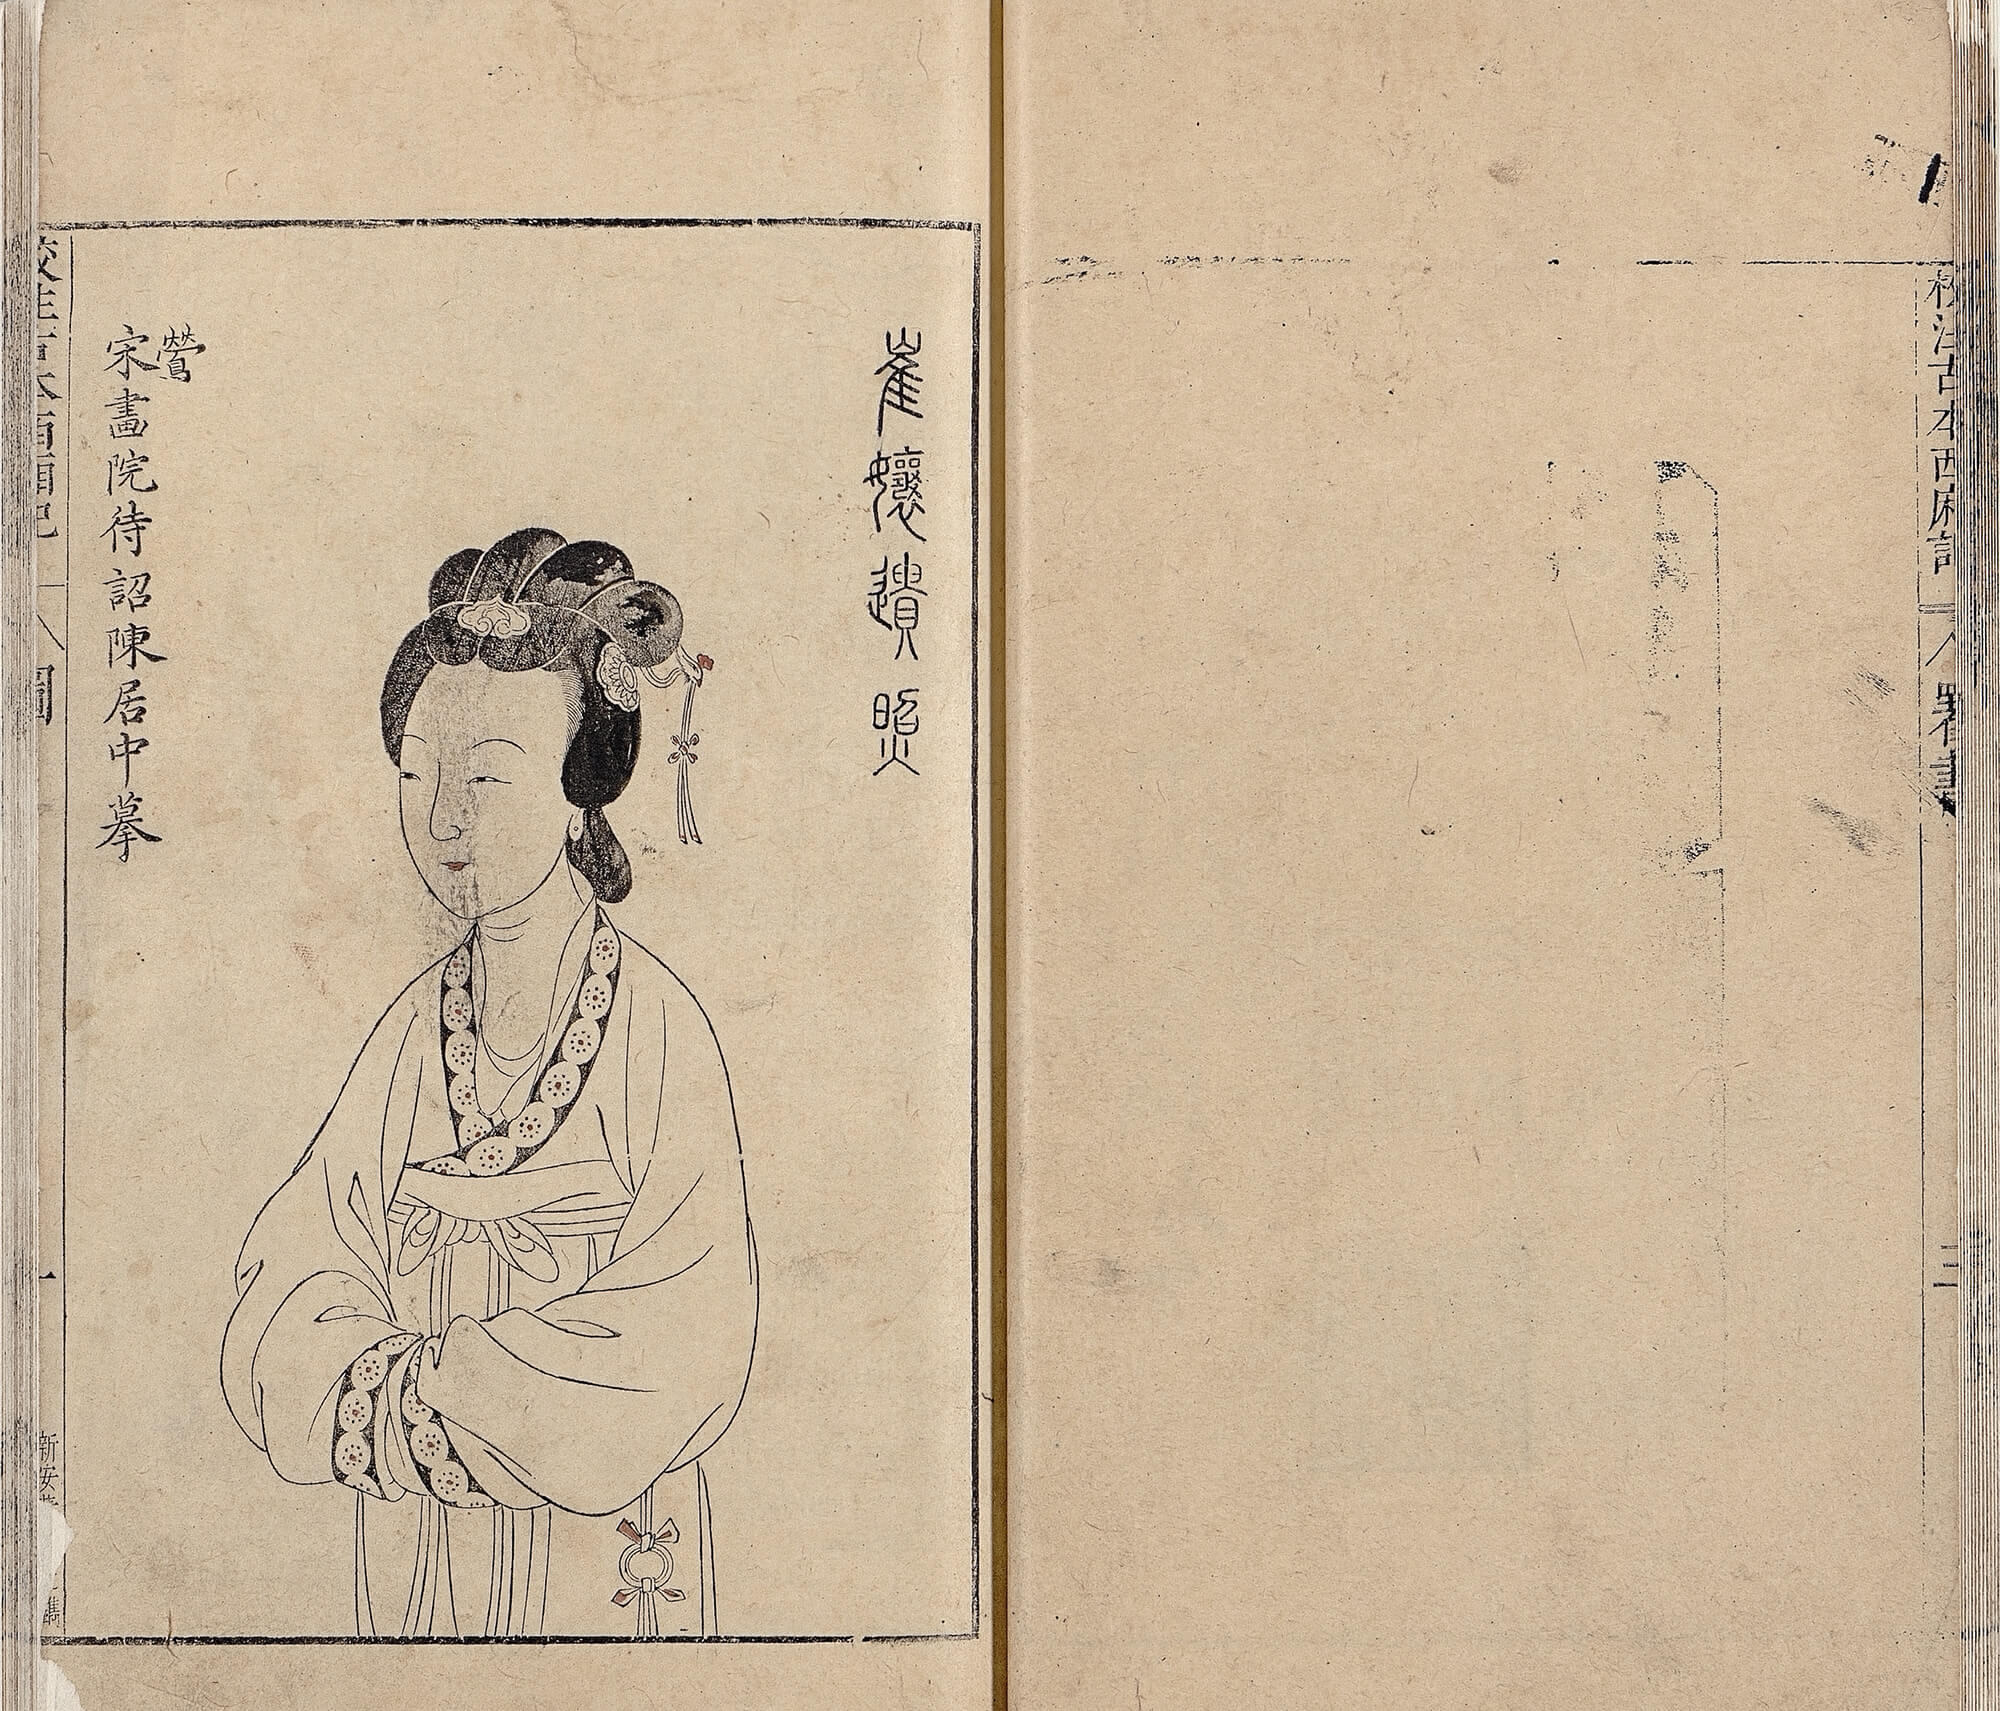 校注古本西廂記
三
崔孃遺照
鶯
宋畫院待詔陳居中摹
校注古本西廂記
圖
一
新安
鐫